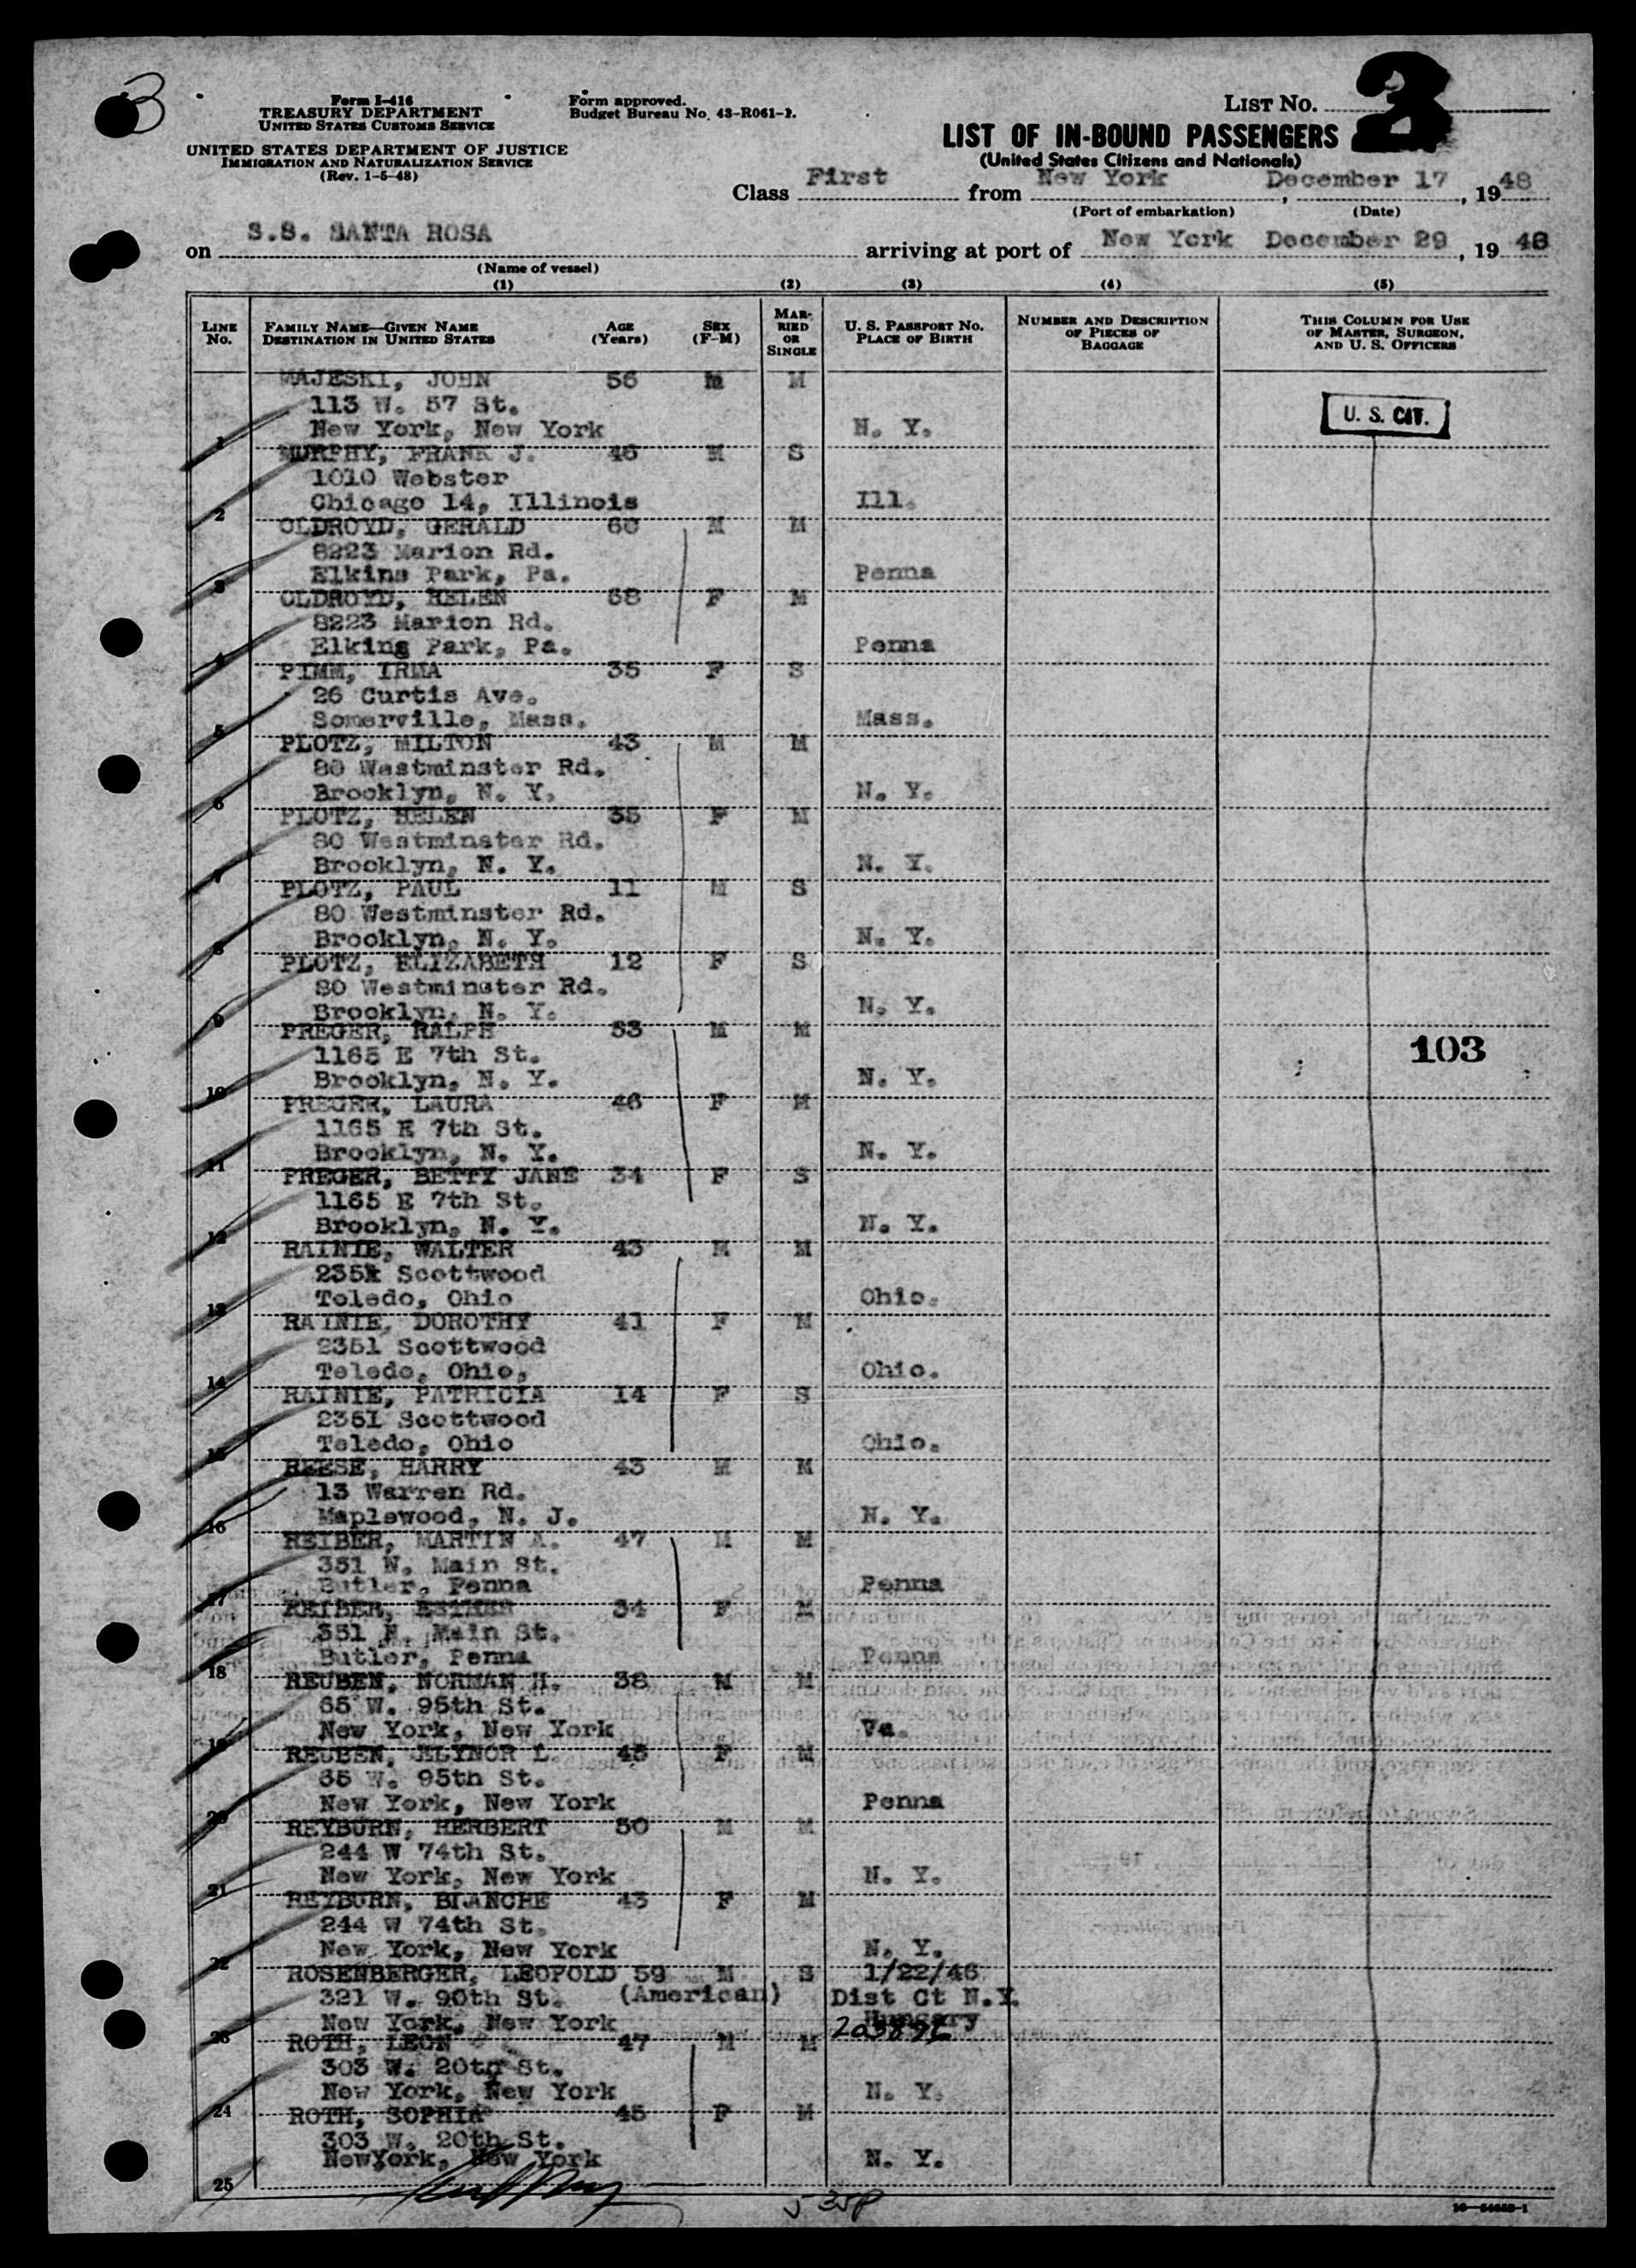 3
Form I-416
TREASURY DEPARTMENT
UNITED STATES CUSTOMS SERVICE
UNITED STATES DEPARTMENT OF JUSTICE
IMMIGRATION AND NATURALIZATION SERVICE
(Rev. 1-5-48)
Form approved.
Budget Bureau No. 43-R061-2.
LIST NO. 3
LIST OF IN-BOUND PASSENGERS
(United States Citizens and Nationals)
Class First from New York, December 17, 1948
(Port of embarkation) (Date)
on S.S. SANTA ROSA arriving at port of New York December 29, 1948
(Name of vessel)
(1) (2) (3) (4) (5)
LINE No. FAMILY NAME—GIVEN NAME DESTINATION IN UNITED STATES AGE (Years) SEX (F-M) MARRIED OR SINGLE U. S. PASSPORT NO. PLACE OF BIRTH NUMBER AND DESCRIPTION OF PIECES OF BAGGAGE THIS COLUMN FOR USE OF MASTER, SURGEON, AND U. S. OFFICERS
MAJESKI, JOHN 56 M M
113 W. 57 St. U. S. CIT.
1 New York, New York N. Y.
MURPHY, FRANK J. 46 M S
1010 Webster
2 Chicago 14, Illinois Ill.
OLDROYD, GERALD 60 M M
8223 Marion Rd.
3 Elkins Park, Pa. Penna
OLDROYD, HELEN 58 F M
8223 Marion Rd.
4 Elking Park, Pa. Penna
PIMM, IRMA 35 F S
26 Curtis Ave.
5 Somerville, Mass. Mass.
PLOTZ, MILTON 43 M M
80 Westminster Rd.
6 Brooklyn, N. Y. N. Y.
PLOTZ, HELEN 35 F M
80 Westminster Rd.
7 Brooklyn, N. Y. N. Y.
PLOTZ, PAUL 11 M S
80 Westminster Rd.
8 Brooklyn, N. Y. N. Y.
PLOTZ, ELIZABETH 12 F S
80 Westminster Rd.
9 Brooklyn, N. Y. N. Y.
PREGER, RALPH 53 M M
1165 E 7th St. 103
10 Brooklyn, N. Y. N. Y.
PREGER, LAURA 46 F M
1165 E 7th St.
11 Brooklyn, N. Y. N. Y.
PREGER, BETTY JANE 34 F S
1165 E 7th St.
12 Brooklyn, N. Y. N. Y.
RAINIE, WALTER 43 M M
2351 Scottwood
13 Toledo, Ohio Ohio.
RAINIE, DOROTHY 41 F M
2351 Scottwood
14 Toledo, Ohio, Ohio.
RAINIE, PATRICIA 14 F S
2351 Scottwood
15 Toledo, Ohio Ohio.
REESE, HARRY 43 M M
13 Warren Rd.
16 Maplewood, N. J. N. Y.
REIBER, MARTIN A. 47 M M
351 N. Main St.
17 Butler, Penna Penna
REIBER, ESTHER 34 F M
351 N. Main St.
18 Butler, Penna Penna
REUBEN, NORMAN H. 38 M M
65 W. 95th St.
19 New York, New York Va.
REUBEN, ELYNOR L. 43 F M
65 W. 95th St.
20 New York, New York Penna
REYBURN, HERBERT 50 M M
244 W 74th St.
21 New York, New York N. Y.
REYBURN, BLANCHE 43 F M
244 W 74th St.
22 New York, New York N. Y.
ROSENBERGER, LEOPOLD 59 M S 1/22/46
321 W. 90th St. (American) Dist Ct N.Y.
23 New York, New York Hungary
ROTH, LEON 47 M M
303 W. 20th St.
24 New York, New York N. Y.
ROTH, SOPHIA 45 F M
303 W. 20th St.
25 NewYork, New York N. Y.